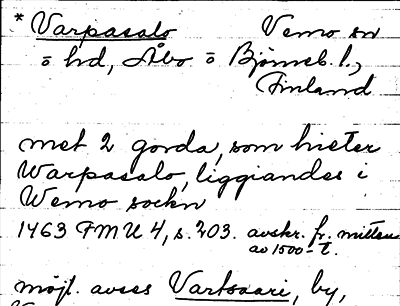 * Varpasalo Vemo sn
o hd, Åbo o Björneb. l.,
Finland
met 2 gorda, som hieter
Warpasalo, liggiandes i
Wemo sockn
1463 FMU 4, s. 203. avskr. fr. mitten
av 1500-t.
möjl. avses Vartsaari, by,